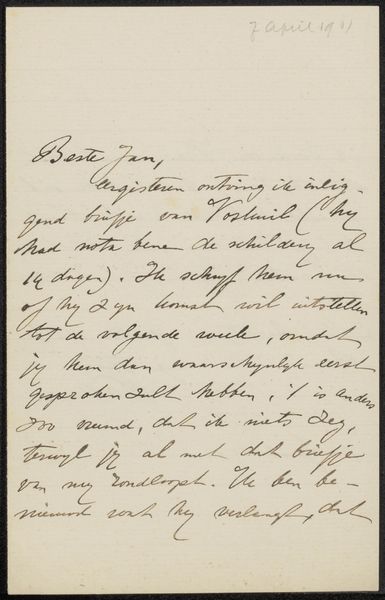 7 April 1911
Beste Jan,
eergisteren ontving ik inlig-
gend briefje van Voskuil (hy
had nota bene de schildery al
14 dagen). Ik schryf hem nu
of hy zyn komst wil uitstellen
tot de volgende week, omdat
jy hem dan waarschynlyk eerst
gesproken zult hebben, 't is anders
zoo vreemd, dat ik niets zeg,
terwyl jy al met dat briefje
van my rondloopt. Ik ben be-
nieuwd wat hy verlangt, dat